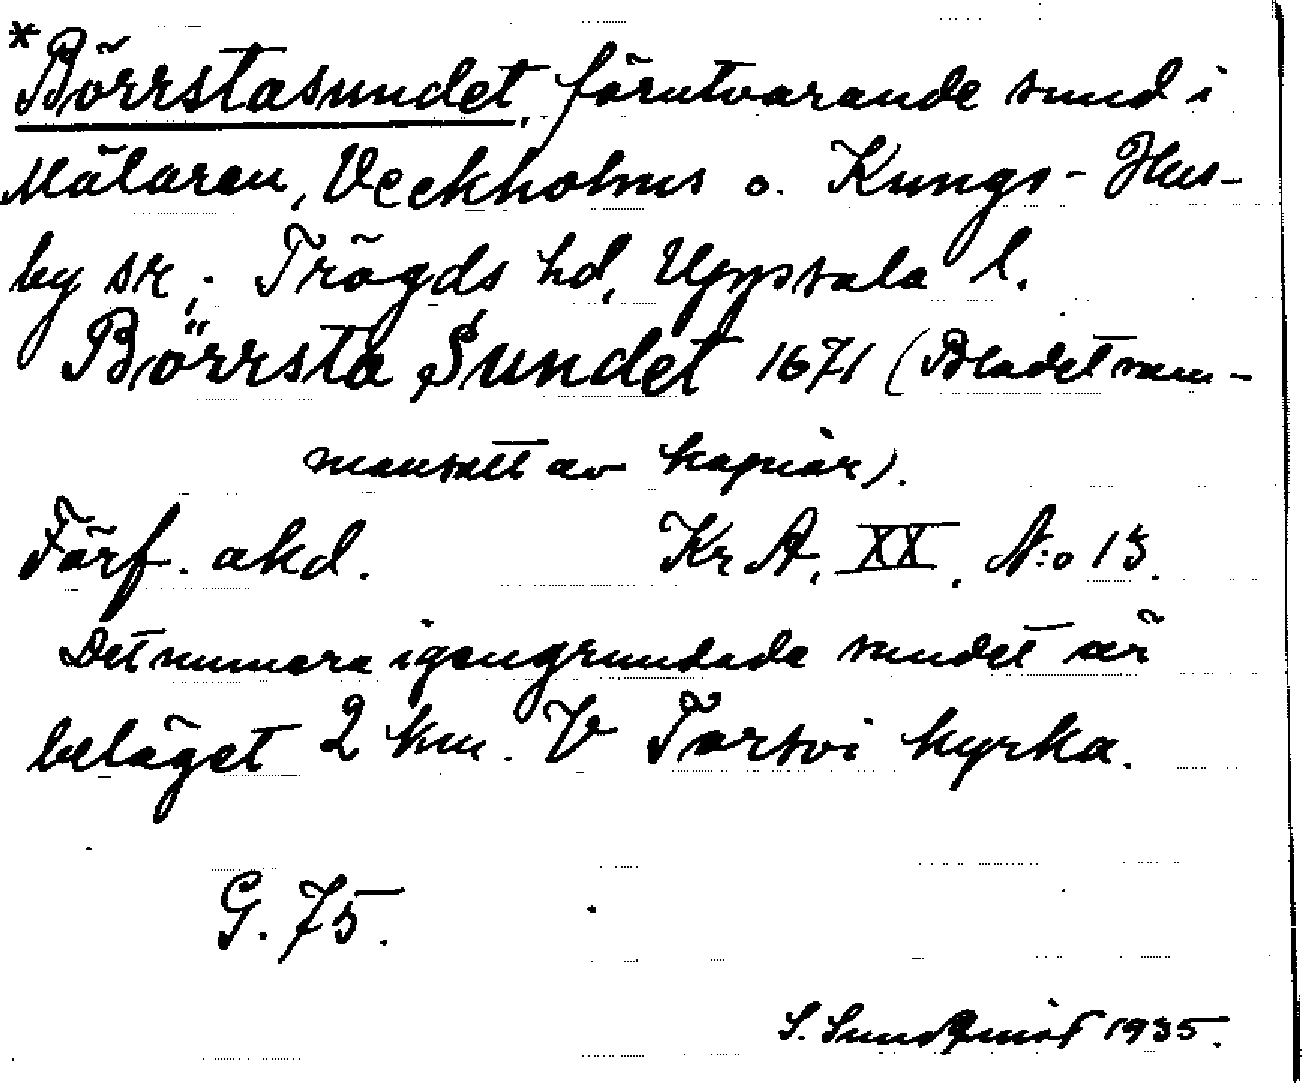 *Börrstasundet, förutvarande sund i
Mälaren, Veckholms o. Kungs-Hus-
by sr, Trögds hd, Uppsala l.
Börrsta Sundet 1671 (Bladet sam-
mansatt av kopior).
Förf. okd. Kr A, XX. N:o 13.
Det numera igengrundade sundet är
beläget 2 km. V Torsvi kyrka.
G. 75.
S. Sundqvist 1935.